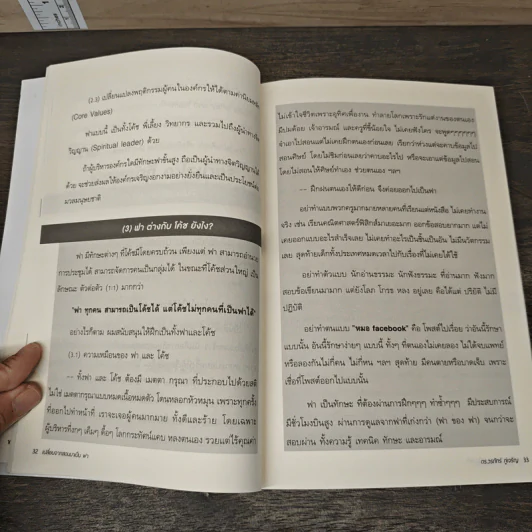 (2.3) เปลี่ยนแปลงพฤติกรรมผู้คนในองค์กรให้ได้ตามค่านิยมหลัก
(Core Values)
ฟาแบบนี้ เป็นทั้งโค้ช พี่เลี้ยง วิทยากร และรวมไปถึงผู้นำทางจิต
วิญญาณ (Spiritual leader) ด้วย
ถ้าผู้บริหารองค์กรใดมีทักษะฟาขั้นสูง ถือเป็นผู้นำทางจิตวิญญาณได้
ด้วย จะช่วยส่งผลให้องค์กรเจริญงอกงามอย่างยั่งยืนและเป็นประโยชน์ต่อ
มวลมนุษยชาติ
(3) ฟา ต่างกับ โค้ช ยังไง?
ฟา มีทักษะต่างๆ ที่โค้ชมีโดยครบถ้วน เพียงแต่ ฟา สามารถอำนวย
การประชุมได้ สามารถจัดการคนเป็นกลุ่มได้ ในขณะที่โค้ชส่วนใหญ่ เป็น
ลักษณะ ตัวต่อตัว (1:1) มากกว่า
"ฟา ทุกคน สามารถเป็นโค้ชได้ แต่โค้ชไม่ทุกคนที่เป็นฟาได้"
อย่างไรก็ตาม ผมสนับสนุนให้ฝึกเป็นทั้งฟาและโค้ช
(3.1) ความเหมือนของ ฟา และ โค้ช
-- ทั้งฟา และ โค้ช ต้องมี เมตตา กรุณา ที่ประกอบไปด้วยสติ
ไม่ใช่ เมตตากรุณาแบบหมดเนื้อหมดตัว โดนหลอกหัวหมุน เพราะทุกครั้ง
ที่ออกไปทำหน้าที่ เราจะเจอผู้คนมากมาย ทั้งดีและร้าย โดยเฉพาะ
ผู้บริหารทิ่งกๆ เค็มๆ ดื้อๆ โลกกระทัศน์แคบ หลงตนเอง รวยแต่ไร้คุณค่า
52 เปลี่ยนจากสอนมาเป็น ฟา
ไม่เข้าใจชีวิตเพราะอุทิศเพื่องาน ทำลายโลกเพราะรักแต่งานของตนเอง
มีปมด้อย เจ้าอารมณ์ และครูที่ขี้น้อยใจ ไม่เคยฟังใคร จะพูดๆๆๆๆๆๆๆ
จำเอาไปสอนแต่ไม่เคยฝึกตนเองก่อนเลย เรียกว่าห่วงแต่จะคาบข้อมูลไป
สอนศิษย์ โดยไม่ชิมก่อนเลยว่าคาบอะไรไป หรือจะเอาแต่ข้อมูลไปสอน
โดยไม่สอนให้ศิษย์ทำเอง ช่วยตนเอง ฯลฯ
-- ฝึกฝนตนเองให้ดีก่อน จึงค่อยออกไปเป็นฟา
อย่าทำแบบพวกครูมากมายหลายคนที่เรียนแต่หนังสือ ไม่เคยทำงาน
จริง เช่น เรียนคณิตศาสตร์ฟิสิกส์มาเยอะมาก ออกข้อสอบยากมาก แต่ไม่
เคยออกแบบอะไรสำเร็จเลย ไม่เคยทำอะไรเป็นชิ้นเป็นอัน ไม่มีนวัตกรรม
เลย สุดท้ายเด็กทั้งประเทศหมดเวลาไปกับเรื่องที่ไม่เคยได้ใช้
อย่าทำตัวแบบ นักอ่านธรรมะ นักฟังธรรมะ ที่อ่านมาก ฟังมาก
สอบข้อเขียนมามาก แต่ยังโลภ โกรธ หลง อยู่เลย คือได้แต่ ปริยัติ ไม่มี
ปฏิบัติ
อย่าทำตนแบบ "หมอ facebook" คือ โพสต์ไปเรื่อย ว่าอันนี้รักษา
แบบนั้น อันนี้รักษาง่ายๆ แบบนี้ ทั้งๆ ที่ตนเองไม่เคยลอง ไม่ได้จบแพทย์
หรือลองกันไม่กี่คน ไม่กี่หน ฯลฯ สุดท้าย มีคนตายหรือบาดเจ็บ เพราะ
เชื่อที่โพสต์ออกไปแบบนั้น
ฟา เป็นทักษะ ที่ต้องผ่านการฝึกๆๆๆ ทำซ้ำๆๆๆ มีประสบการณ์
มีชั่วโมงบินสูง ผ่านการดูแลจากฟาที่เก่งกว่า (ฟา ของ ฟา) จนกว่าจะ
สอบผ่าน ทั้งความรู้ เทคนิค ทักษะ และอารมณ์
ดร.วรภัทร์ ภู่เจริญ 53